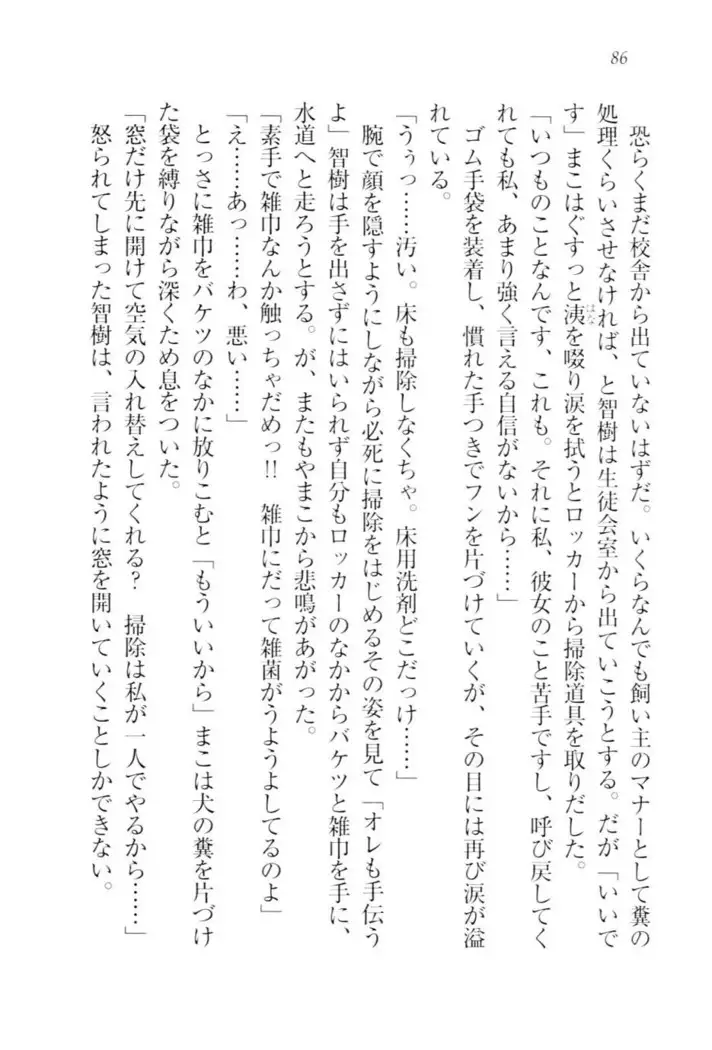 86
恐らくまだ校舎から出ていないはずだ。いくらなんでも飼い主のマナーとして糞の
処理くらいさせなければ、と智樹は生徒会室から出ていこうとする。だが「いいで
す」まこはぐすっと洟を啜り涙を拭うとロッカーから掃除道具を取りだした。
はな
「いつものことなんです、これも。それに私、彼女のこと苦手ですし、呼び戻してく
れても私、あまり強く言える自信がないから……」
ゴム手袋を装着し、慣れた手つきでフンを片づけていくが、その目には再び涙が溢
れている。
「うぅっ……汚い。床も掃除しなくちゃ。床用洗剤どこだっけ……」
腕で顔を隠すようにしながら必死に掃除をはじめるその姿を見て「オレも手伝う
よ」智樹は手を出さずにはいられず自分もロッカーのなかからバケツと雑巾を手に、
水道へと走ろうとする。が、またもやまこから悲鳴があがった。
「素手で雑巾なんか触っちゃだめっ!!　雑巾にだって雑菌がうようよしてるのよ」
「え……あっ……わ、悪い……」
とっさに雑巾をバケツのなかに放りこむと「もういいから」まこは犬の糞を片づけ
た袋を縛りながら深くため息をついた。
「窓だけ先に開けて空気の入れ替えしてくれる？　掃除は私が一人でやるから……」
怒られてしまった智樹は、言われたように窓を開いていくことしかできない。